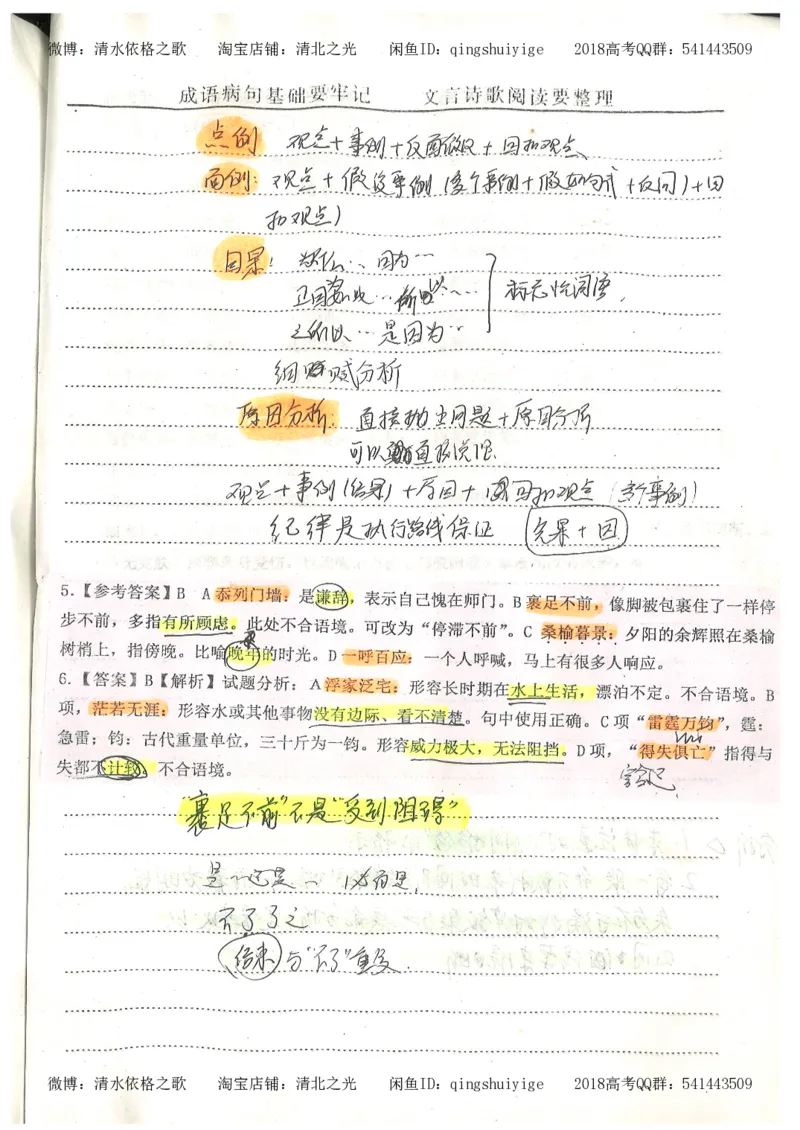 微博：清水依格之歌　　淘宝店铺：清北之光　　闲鱼ID：qingshuiyige　　2018高考QQ群：541443509
成语病句基础要牢记　　文言诗歌阅读要整理
点例　观点+事例+反面假设+回扣观点
面例：观点+假设事例（多个事例+假如句式+反问）+回
扣观点）
因果：为什么…因为…
正因如此…所以…
之所以…是因为…
标志性词语，
分析
原因分析：直接抛出问题+原因分析
可以直接说理
观点+事例（结果）+原因+回扣观点（多个事例）
纪律是执行路线保证　先果+因
5.【参考答案】B　A 忝列门墙：是谦辞，表示自己愧在师门。B 裹足不前，像脚被包裹住了一样停
步不前，多指有所顾虑。此处不合语境。可改为“停滞不前”。C 桑榆暮景：夕阳的余辉照在桑榆
树梢上，指傍晚。比喻晚年的时光。D 一呼百应：一个人呼喊，马上有很多人响应。
6.【答案】B【解析】试题分析：A 浮家泛宅：形容长时期在水上生活，漂泊不定。不合语境。B
项，茫若无涯：形容水或其他事物没有边际、看不清楚。句中使用正确。C 项“雷霆万钧”，霆：
急雷；钧：古代重量单位，三十斤为一钧。形容威力极大，无法阻挡。D 项，“得失俱亡”指得与
失都不计较。不合语境。
“裹足不前”不是“受到阻碍”
是…还是…　而是，
不了了之
结束　与“不了”重复．
微博：清水依格之歌　　淘宝店铺：清北之光　　闲鱼ID：qingshuiyige　　2018高考QQ群：541443509